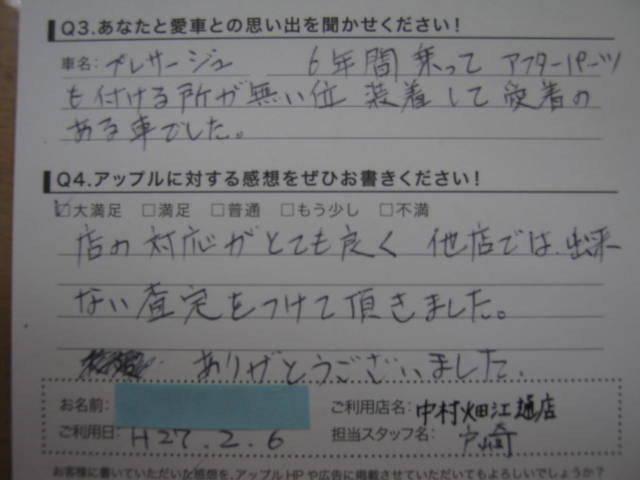 Q3.あなたと愛車との思い出を聞かせください！
車名：プレサージュ 6年間 乗って アフターパーツ
も付ける所が無い位 装着して愛着の
ある車でした。
Q4.アップルに対する感想をぜひお書きください！
☑大満足 □満足 □普通 □もう少し □不満
店の対応がとても良く 他店では、出来
ない査定をつけて頂きました。
ありがとうございました。
お名前： ご利用店名：中村畑江通店
ご利用日：H27.2.6 担当スタッフ名：戸崎
お客様に書いていただいた感想を、アップルHPや広告に掲載させていただいてもよろしいでしょうか？